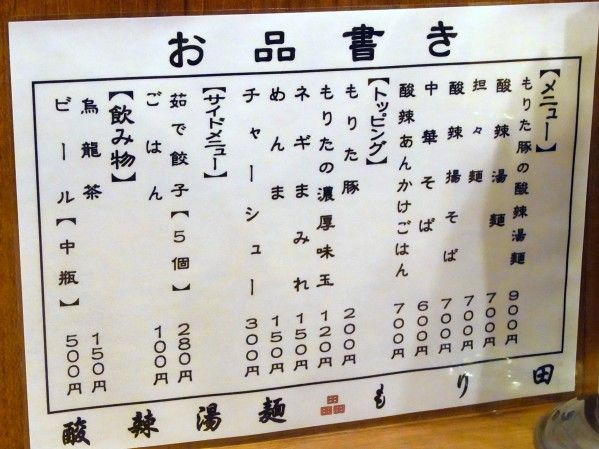 お品書き
【メニュー】
もりた豚の酸辣湯麺 900円
酸辣湯麺 700円
担々麺 700円
酸辣揚そば 700円
中華そば 600円
酸辣あんかけごはん 700円
【トッピング】
もりた豚 200円
もりたの濃厚味玉 120円
ネギまみれ 150円
めんま 150円
チャーシュー 300円
【サイドメニュー】
茹で餃子【5個】 280円
ごはん 100円
【飲み物】
烏龍茶 150円
ビール【中瓶】 500円
酸辣湯麺 もり田